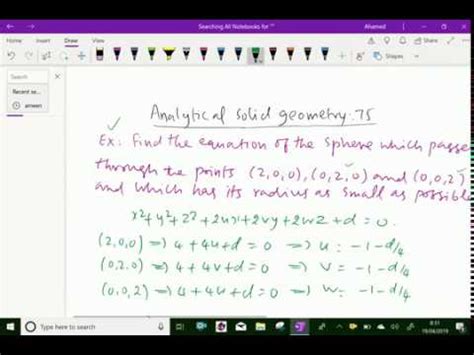 Searching All Notebooks for ""
Ahamed
Home
Insert
Draw
View
Shapes
Search
Recent se...
ameen
Analytical solid geometry:75
Ex: Find the equation of the sphere which passe
through the points (2,0,0), (0,2,0) and (0,0,2)
and which has its radius as small as possible
x²+y²+z²+2ux+2vy+2wz+d=0.
(2,0,0) ⟹ 4+4u+d=0 ⟹ u=-1-d/4
(0,2,0) ⟹ 4+4v+d=0 ⟹ v=-1-d/4
(0,0,2) ⟹ 4+4w+d=0 ⟹ w=-1-d/4
Type here to search
8:31
19/04/2019